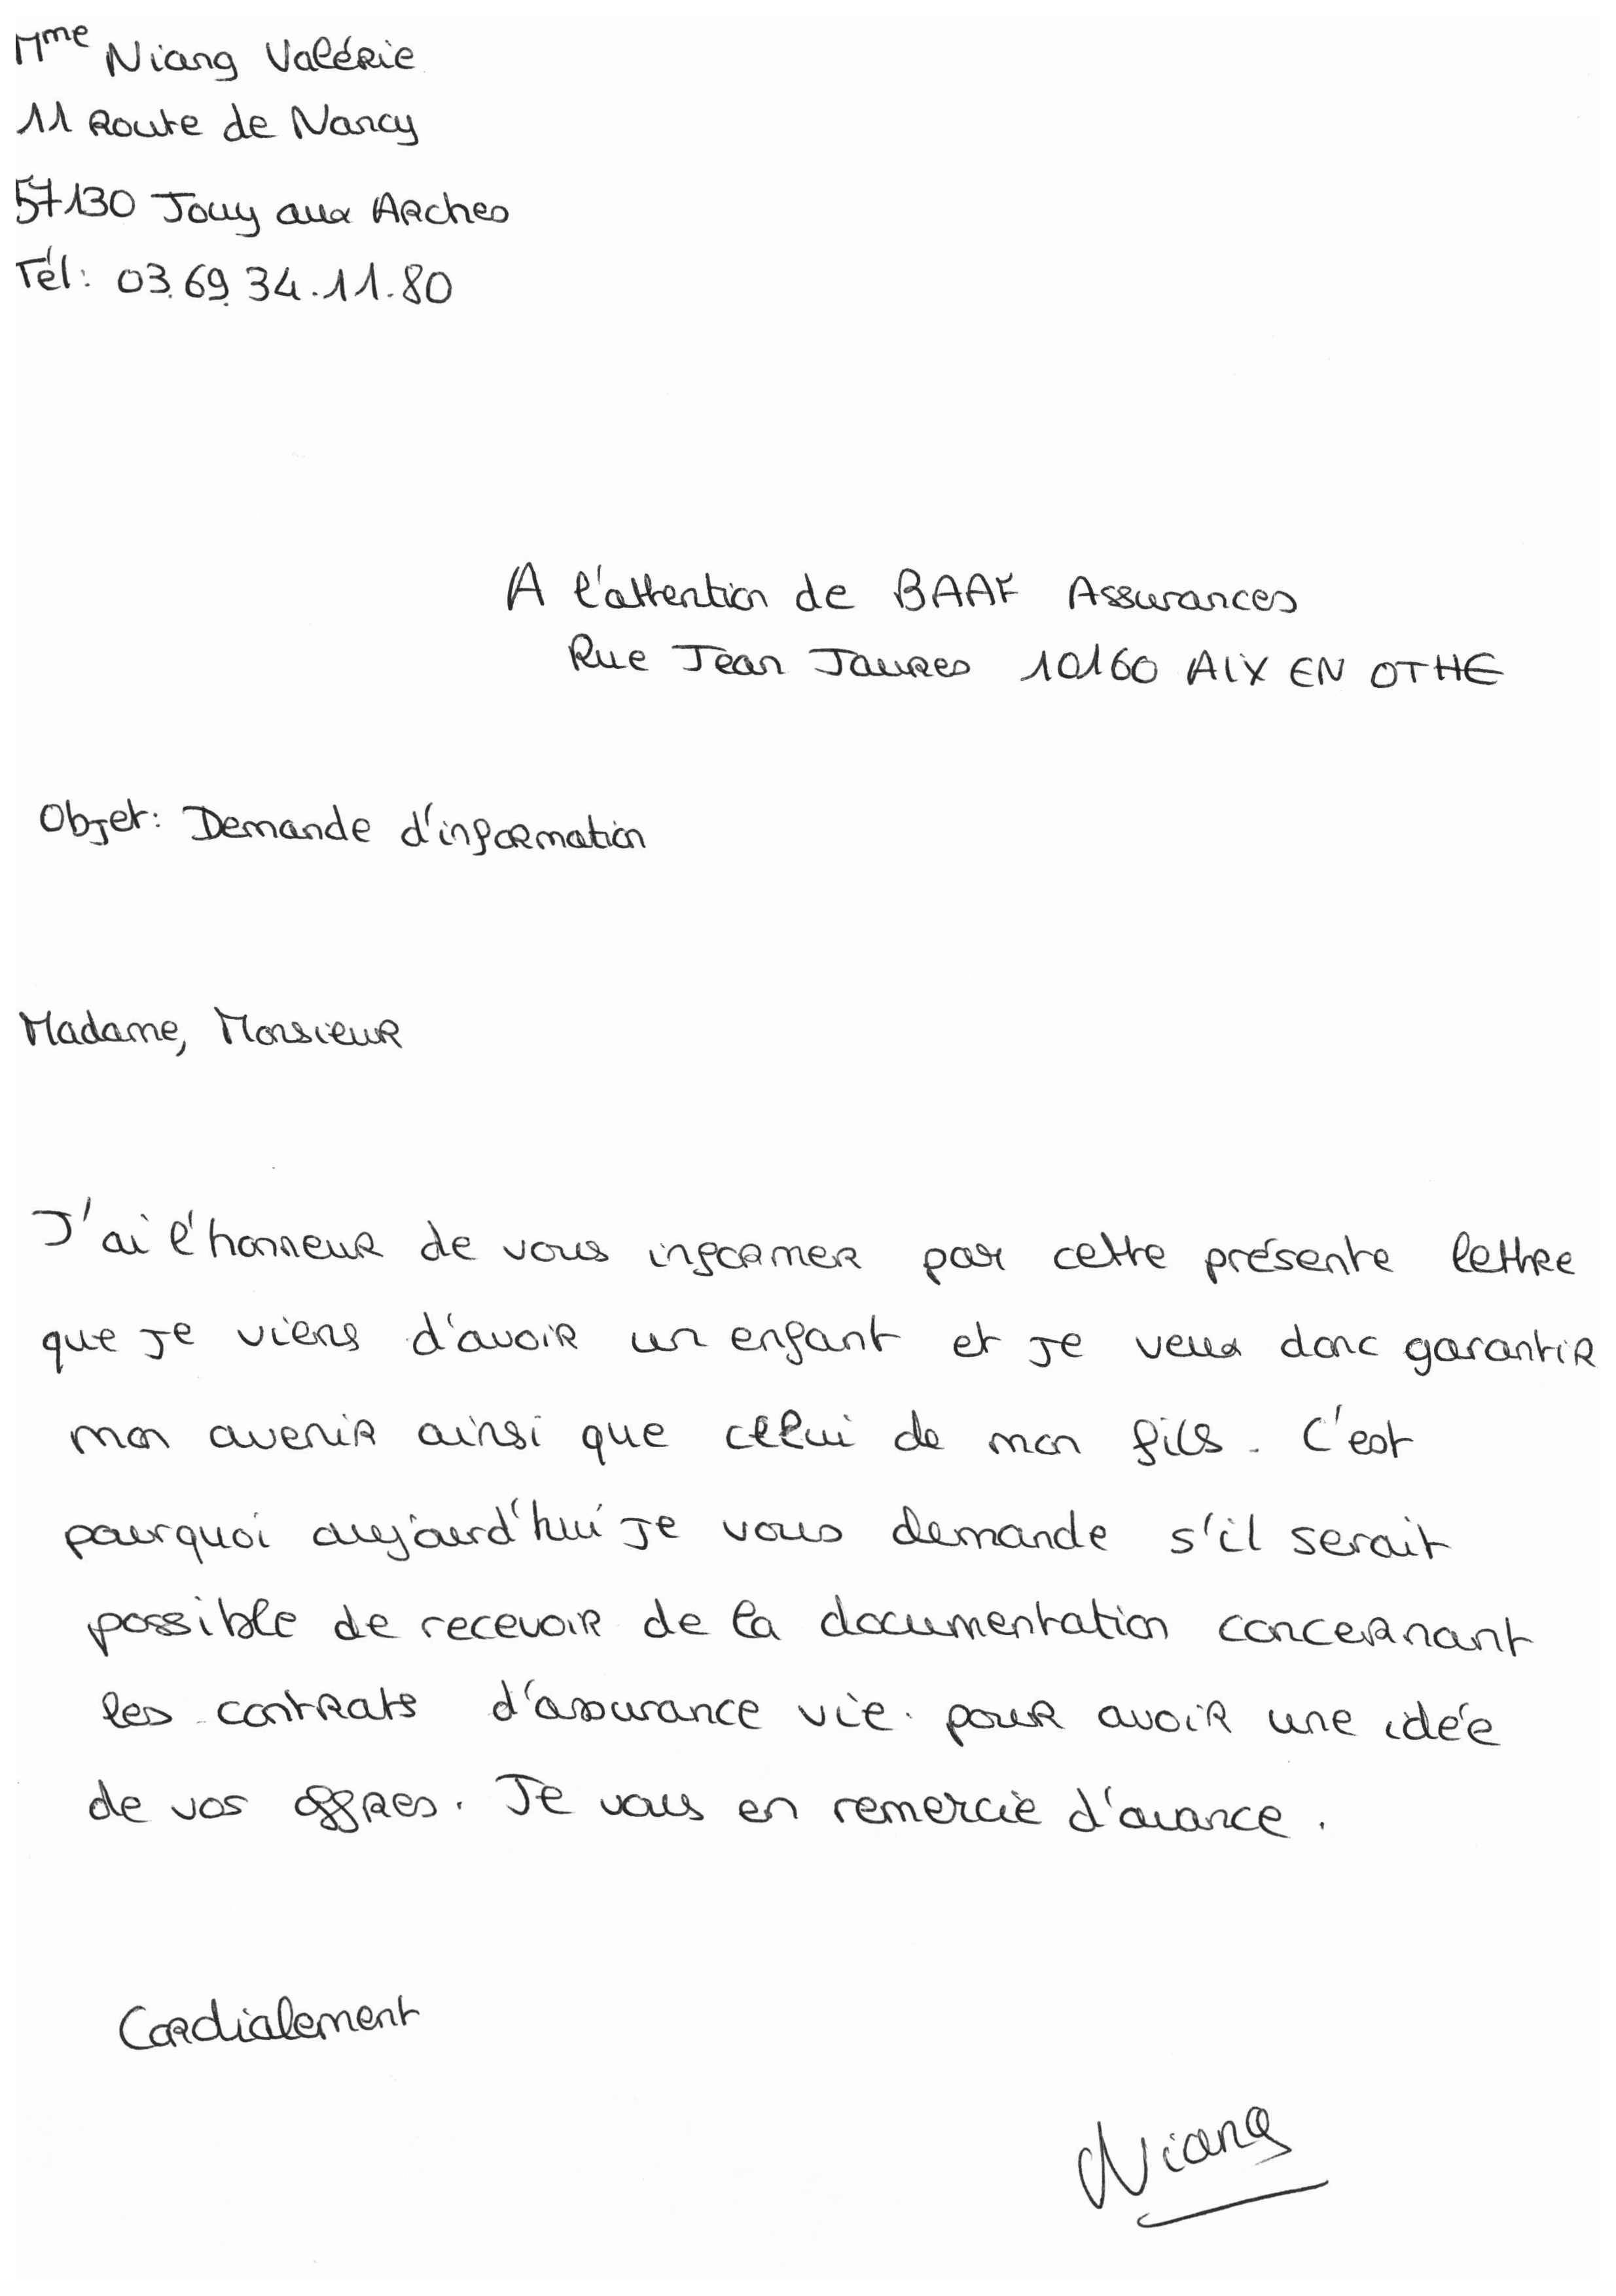 Mme Niang Valérie
11 Route de Nancy
57130 Jouy aux Arches
Tél: 03.69.34.11.80
A l'attention de BAAF Assurances
Rue Jean Jaures 10160 AIX EN OTHE
Objet: Demande d'information
Madame, Monsieur
J'ai l'honneur de vous informer par cette présente lettre
que je viens d'avoir un enfant et je veux donc garantir
mon avenir ainsi que celui de mon fils. C'est
pourquoi aujourd'hui je vous demande s'il serait
possible de recevoir de la documentation concernant
les contrats d'assurance vie. pour avoir une idée
de vos offres. Je vous en remercie d'avance.
Cordialement
Niang